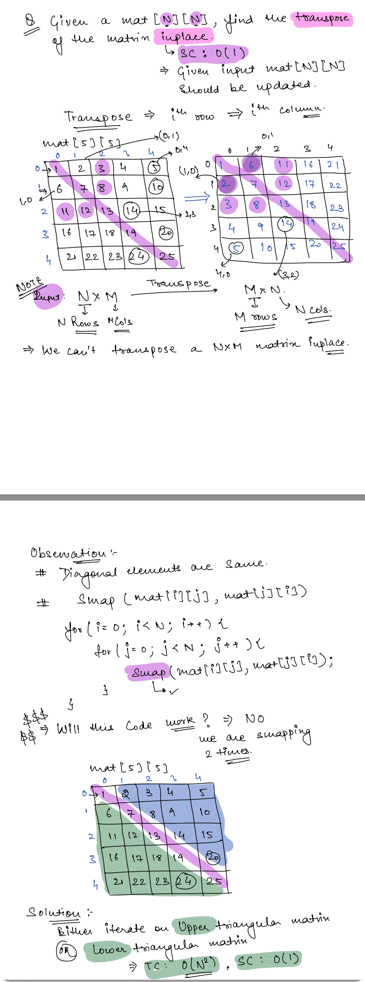 Q Given a mat[N][N], find the transpose
of the matrix inplace.
↳ SC: O(1)
⇒ Given input mat[N][N]
should be updated.
Transpose ⇒ ith row ⇒ ith column.
mat[5][5]
0 1 2 3 4
0 1 2 3 4 5
1 6 7 8 9 10
2 11 12 13 14 15
3 16 17 18 19 20
4 21 22 23 24 25
(0,1)
0,4
1,0
2,3
⇒
0 1 2 3 4
0 1 6 11 16 21
1 2 7 12 17 22
2 3 8 13 18 23
3 4 9 14 19 24
4 5 10 15 20 25
0,1
(1,0)
4,0
(3,2)
NOTE
Input: N×M Transpose M×N.
N Rows M Cols M rows N cols.
⇒ We can't transpose a N×M matrix inplace.
Observation:-
# Diagonal elements are same.
# Swap (mat[i][j], mat[j][i])
for(i=0; i<N; i++){
for(j=0; j<N; j++){
Swap(mat[i][j], mat[j][i);
}
}
$$$
$$ ⇒ Will this Code work? ⇒ NO
we are swapping
2 times.
mat[5][5]
0 1 2 3 4
0 1 2 3 4 5
1 6 7 8 9 10
2 11 12 13 14 15
3 16 17 18 19 20
4 21 22 23 24 25
Solution:-
Either iterate on Upper triangular matrix
OR Lower triangular matrix
⇒ TC: O(N²), SC: O(1)